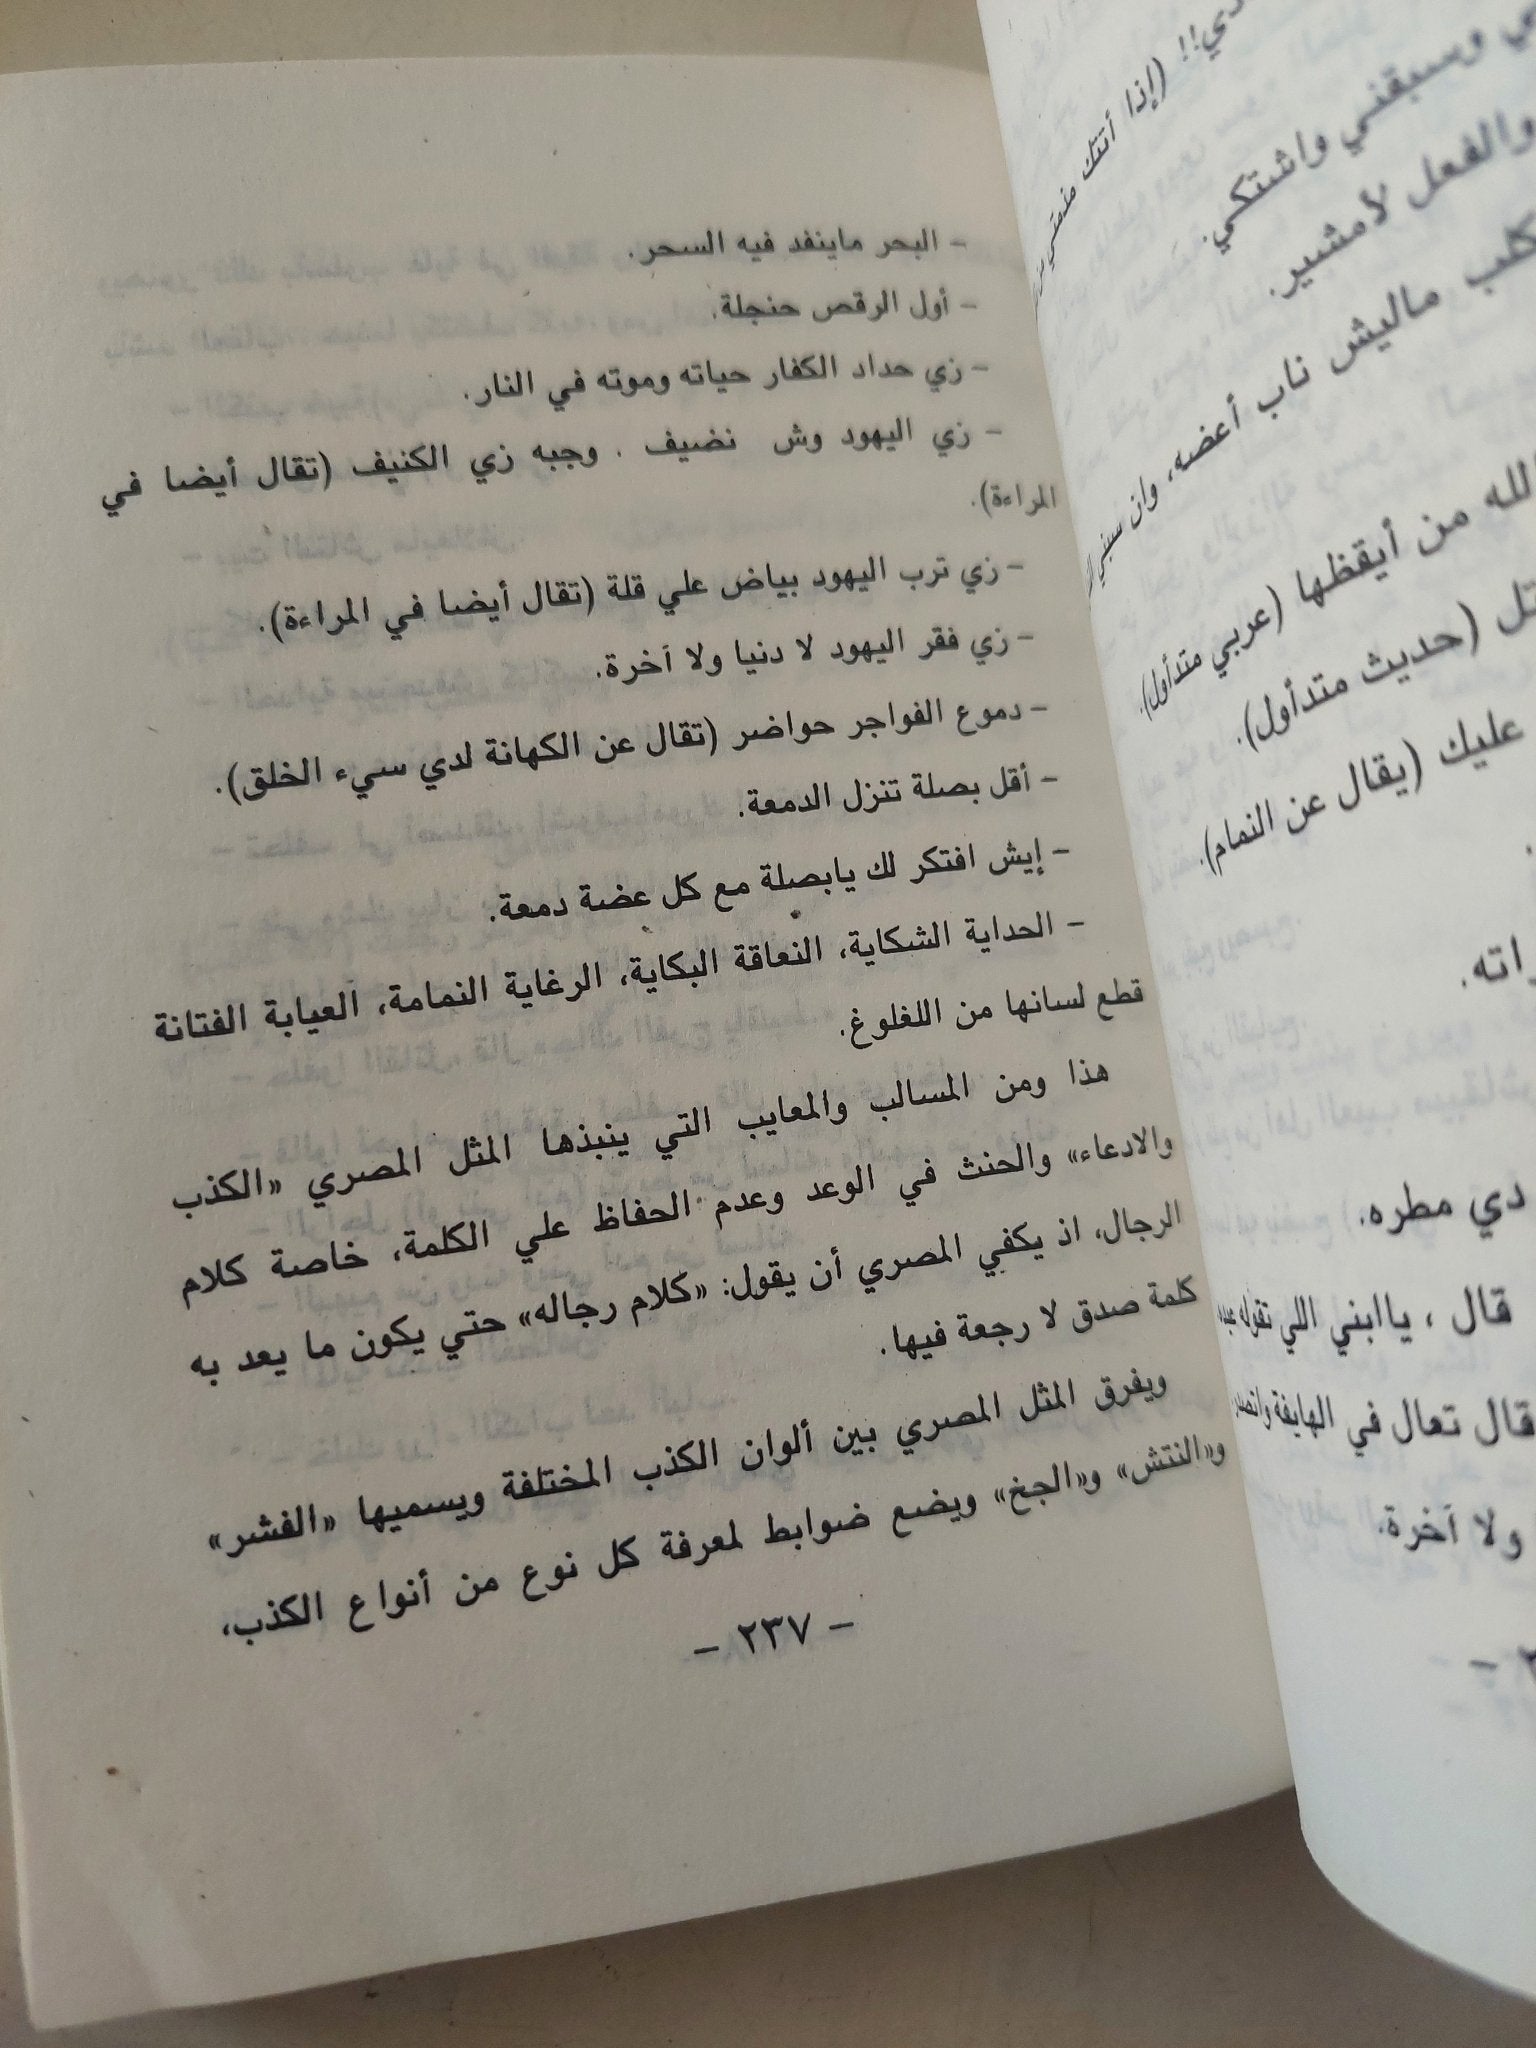 - البحر ماينفد فيه السحر.
- أول الرقص حنجلة.
- زي حداد الكفار حياته وموته في النار.
- زي اليهود وش نضيف . وجبه زي الكنيف (تقال أيضا في
المراءة).
- زي ترب اليهود بياض علي قلة (تقال أيضا في المراءة).
- زي فقر اليهود لا دنيا ولا آخرة.
- دموع الفواجر حواضر (تقال عن الكهانة لدي سيء الخلق).
- أقل بصلة تنزل الدمعة.
- إيش افتكر لك يابصلة مع كل عضة دمعة.
- الحداية الشكاية، النعاقة البكاية، الرغاية النمامة، العيابة الفتانة
قطع لسانها من اللغلوغ.
هذا ومن المسالب والمعايب التي ينبذها المثل المصري «الكذب
والادعاء» والحنث في الوعد وعدم الحفاظ علي الكلمة، خاصة كلام
الرجال، اذ يكفي المصري أن يقول: «كلام رجاله» حتي يكون ما يعد به
كلمة صدق لا رجعة فيها.
ويفرق المثل المصري بين ألوان الكذب المختلفة ويسميها «الفشر»
و«النتش» و«الجخ» ويضع ضوابط لمعرفة كل نوع من أنواع الكذب،
- ٢٣٧ -
دي!! (إذا أتتك مذمتي من
وسبقني واشتكي.
والفعل لأمشير.
كلب ماليش ناب أعضه، وان سبني
الله من أيقظها (عربي متدأول).
(حديث متدأول).
عليك (يقال عن النمام).
دي مطره.
قال ، ياابني اللي تقوله
قال تعال في الهايفة واتصدر
ولا آخرة.